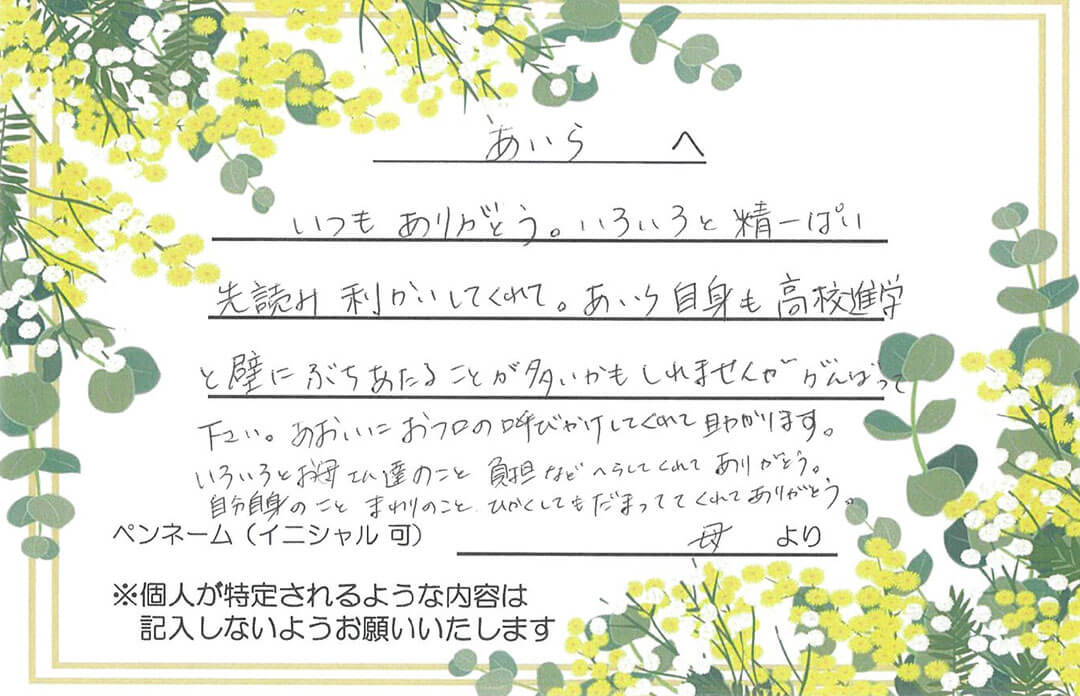 あいら へ
いつも ありがとう。いろいろと 精一ぱい
先読み 利かいしてくれて。あいら 自身も 高校進学
と壁に ぶちあたることが多いかもしれませんが がんばって
下さい。あおいに おフロの呼びかけしてくれて助かります。
いろいろとお母さん達のこと 負担など へらしてくれて ありがとう。
自分自身のこと まわりのこと ひかくしてもだまっててくれてありがとう。
ペンネーム（イニシャル 可） 母 より
※個人が特定されるような内容は
記入しないようお願いいたします